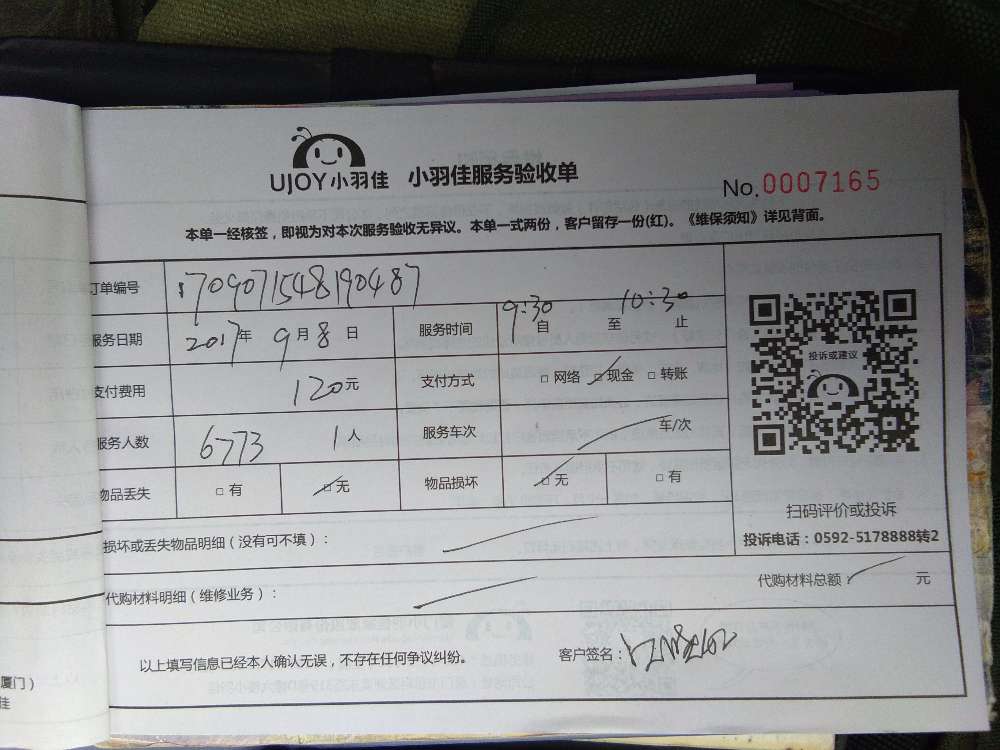 UJOY小羽佳 小羽佳服务验收单
No.0007165
本单一经核签，即视为对本次服务验收无异议。本单一式两份，客户留存一份(红)。《维保须知》详见背面。
订单编号 1709071548190487
服务日期 2017年 9月 8日 服务时间 9:30 自 至 10:30 止
支付费用 120元 支付方式 □ 网络 □ 现金 □ 转账
服务人数 6773 1人 服务车次 车/次
物品丢失 □ 有 □ 无 物品损坏 □ 无 □ 有
投诉或建议
扫码评价或投诉
投诉电话：0592-5178888转2
损坏或丢失物品明细（没有可不填）：
代购材料明细（维修业务）： 代购材料总额 元
以上填写信息已经本人确认无误，不存在任何争议纠纷。 客户签名：
厦门）
佳